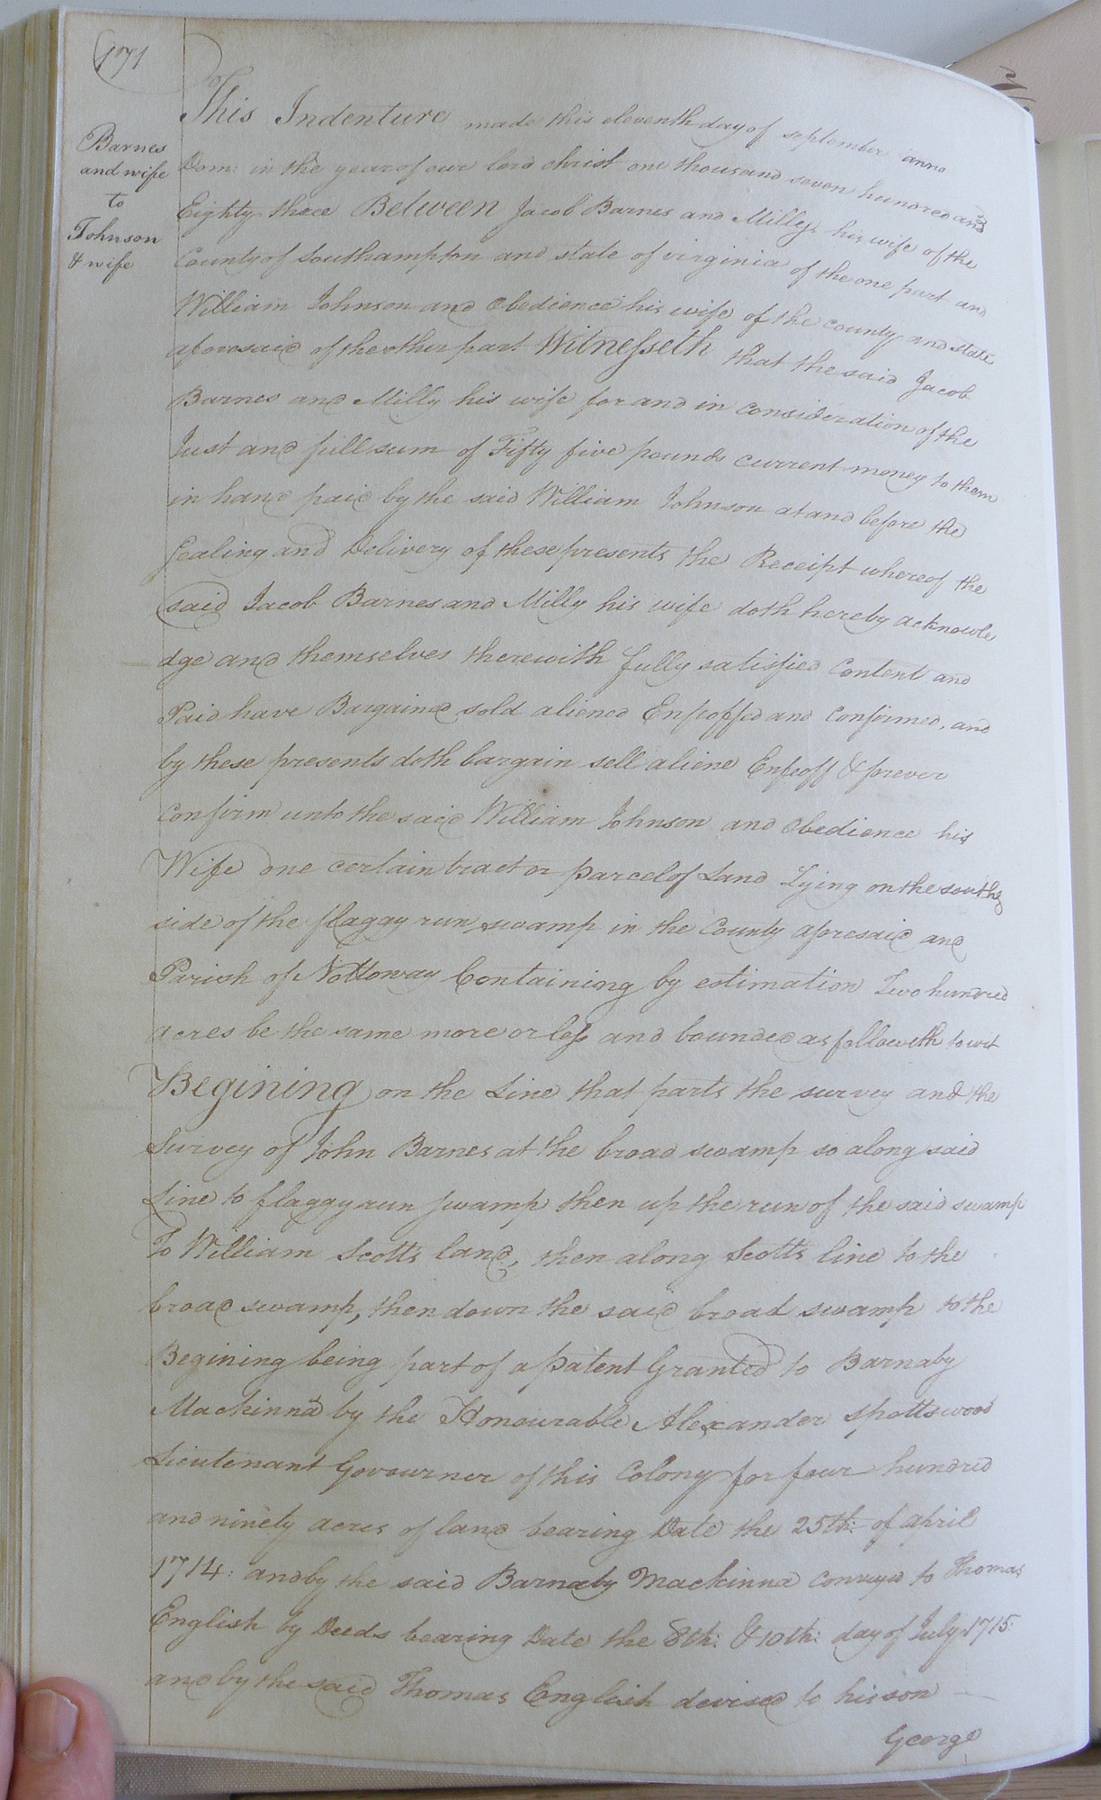 171
Barnes
and wife
to
Johnson
& wife
This Indenture made this eleventh day of september anno
Dom: in the year of our lord christ one thousand seven hundred and
Eighty three Between Jacob Barnes and Milly his wife of the
County of Southampton and state of virginia of the one part and
William Johnson and Obedience his wife of the county and state
aforesaid of the other part Witnesseth that the said Jacob
Barnes and Milly his wife for and in consideration of the
Just and full sum of Fifty five pounds current money to them
in hand paid by the said William Johnson at and before the
sealing and Delivery of these presents the Receipt whereof the
said Jacob Barnes and Milly his wife doth hereby acknowle
dge and themselves therewith fully satisfied Content and
Paid have Bargained sold aliened Enfeoffed and Confirmed, and
by these presents doth bargain sell aliene Enfeoff & forever
Confirm unto the said William Johnson and Obedience his
Wife one certain tract or parcel of Land Lying on the south
side of the flagay run swamp in the County aforesaid and
Parish of Nottoway Containing by estimation Two hundred
acres be the same more or less and bounded as followeth to wit
Begining on the Line that parts the survey and the
Survey of John Barnes at the broad swamp so along said
Line to flaggy run swamp then up the run of the said swamp
To William Scotts land, then along Scotts line to the
broad swamp, then down the said broad swamp to the
Begining being part of a patent Granted to Barnaby
Mackinna by the Honourable Alexander Spottswood
Lieutenant Govourner of this Colony for four hundred
and ninety acres of land bearing Date the 25th: of april
1714: and by the said Barnaby Mackinna Conveyed to Thomas
English by Deeds bearing Date the 8th: & 10th: day of July 1715:
and by the said Thomas English devised to his son
George